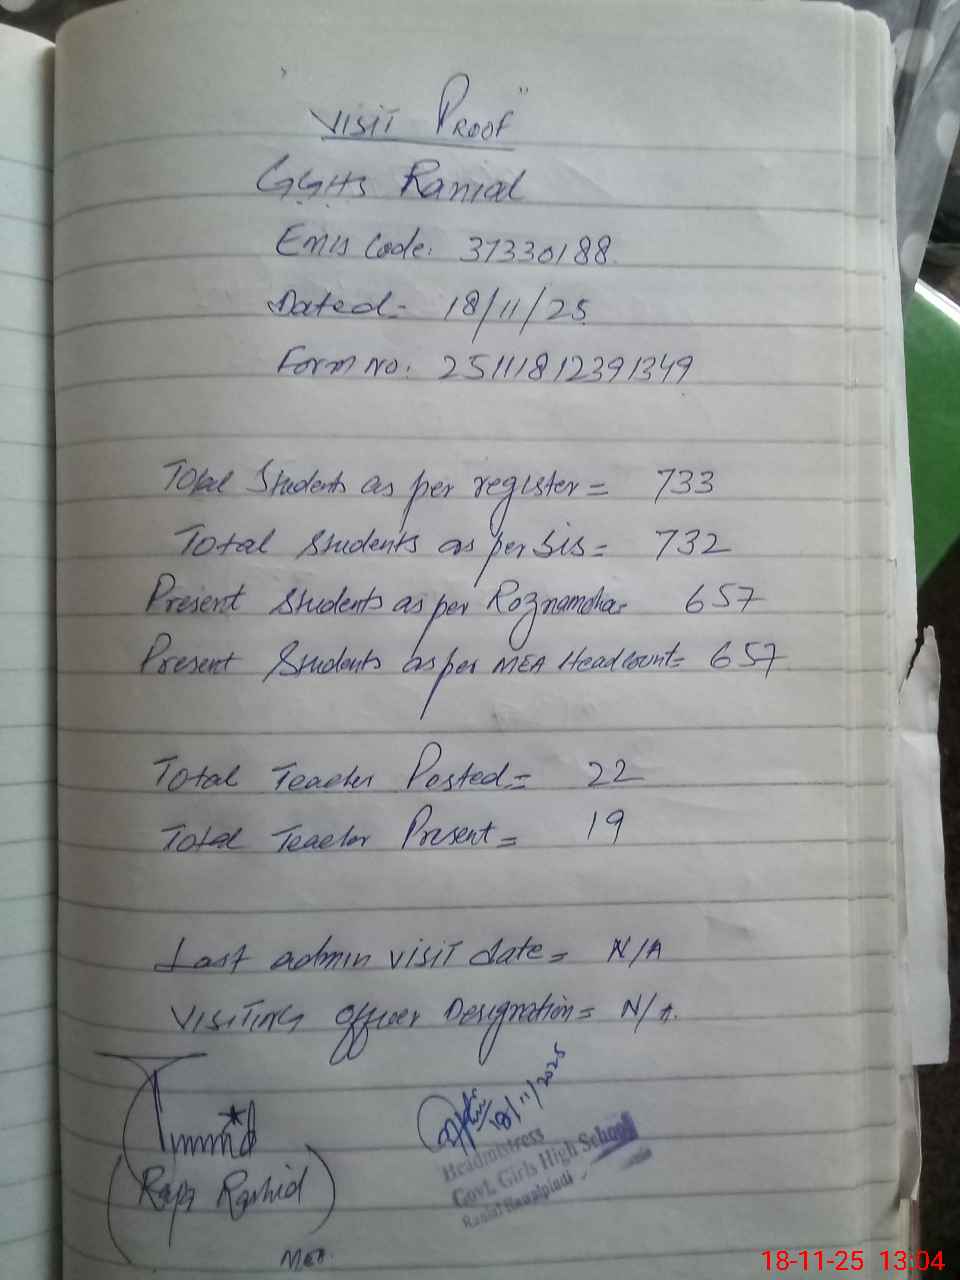 "Visit Proof"
GGHS Ranial
Emis Code: 37330188
Dated:- 18/11/25
Form no: 25111812391349
Total Students as per register = 733
Total Students as per SIS = 732
Present Students as per Roznamcha= 657
Present Students as per MEA Headcount= 657
Total Teacher Posted = 22
Total Teacher Present = 19
Last admin visit date = N/A
Visiting Officer Designation = N/A.
18/11/2025
Headmistress
Govt. Girls High School
Ranial Rawalpindi
Rashid
MEA.
18-11-25 13:04